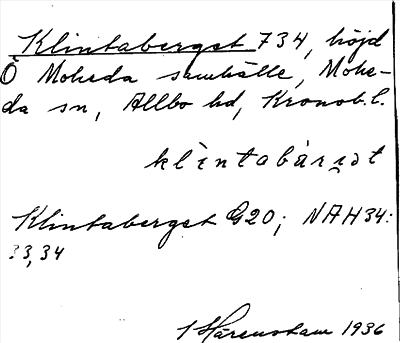 Klintaberget 734, höjd
Ö Moheda samhälle, Mohe-
da sn, Allbo hd, Kronob. l.
klìntabárı̯ət
Klintaberget G20; NAH34:
33,34
Härenstam 1936